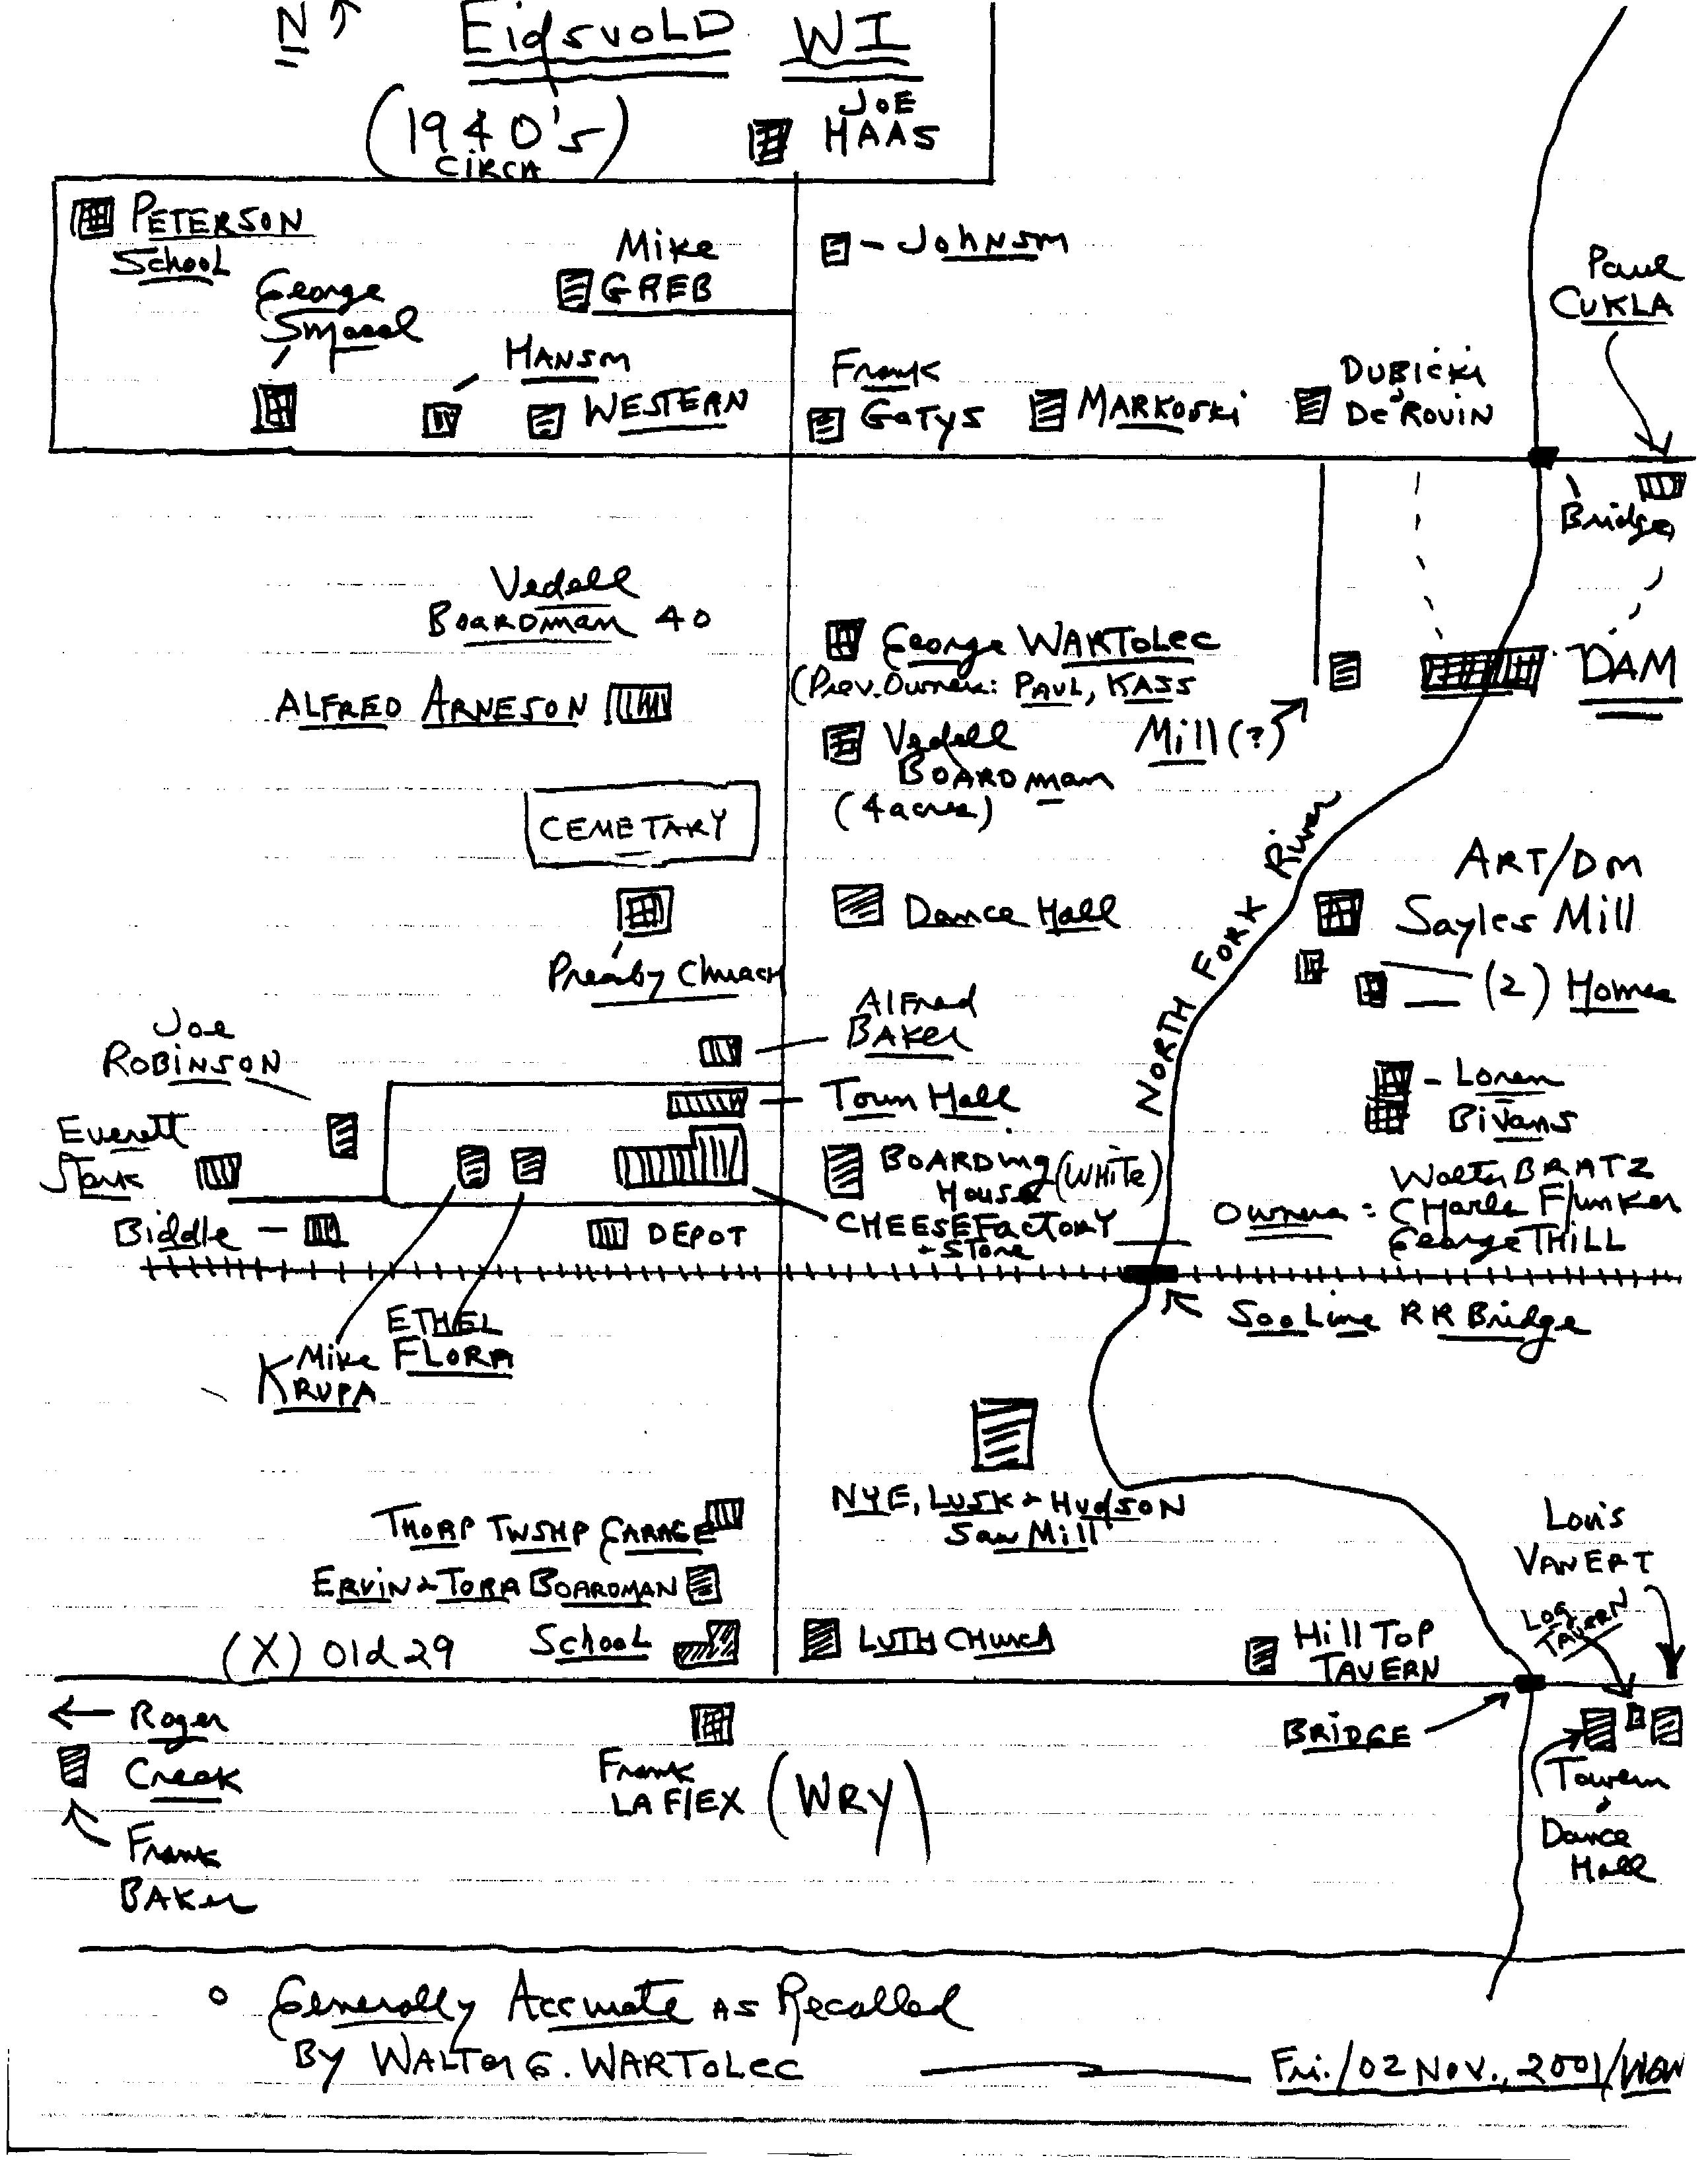 N
EidsvoLD WI
(1940's)
CIRCA
JOE
HAAS
PETERSON
School
George
Mike
GREB
- Johnson
Paul
CUKLA
HANSON
WESTERN
Frank
GaTys
MARKOSKi
DUBicki
De'ROVIN
Bridge
Vedell
BOARDMAN 40
ALFRED ARNESON
George WARTOLEC
(Prev. Owners: PAUL, KASS
Vedell
BOARDman
(4 acres)
Mill (?)
DAM
CEMETARY
NORTH FORK River
ART/DON
Sayles Mill
(2) Homes
Dance Hall
Presby Church
Alfred
BAKer
Joe
ROBINSON
Town Hall
- Loren
Bivans
Everett
BOARDing (WHiTe)
House
Owners:
Walter BRATZ
CHarle Flunker
George THiLL
Biddle -
DEPOT
CHEESE FacTORY
+ STore
Soo Line RR Bridge
ETHEL
FLORA
Mike
KRUPA
NYE, LUSK + HUdSON
Saw Mill
THORP TWSHP GARAGE
ERViN + TORA BOARDMAN
(X) Old 29
School
LUTH CHurch
Hill Top
TAVERN
Louis
VANERT
LOG
TAVERN
BRIDGE
Tavern
Dance
Hall
Roger
Creek
Frank
BAKer
Frank
LAFlEX (WRY)
Generally Accurate AS Recalled
By WALTer G. WARTOLEC
Fri./02 Nov., 2001/WGW